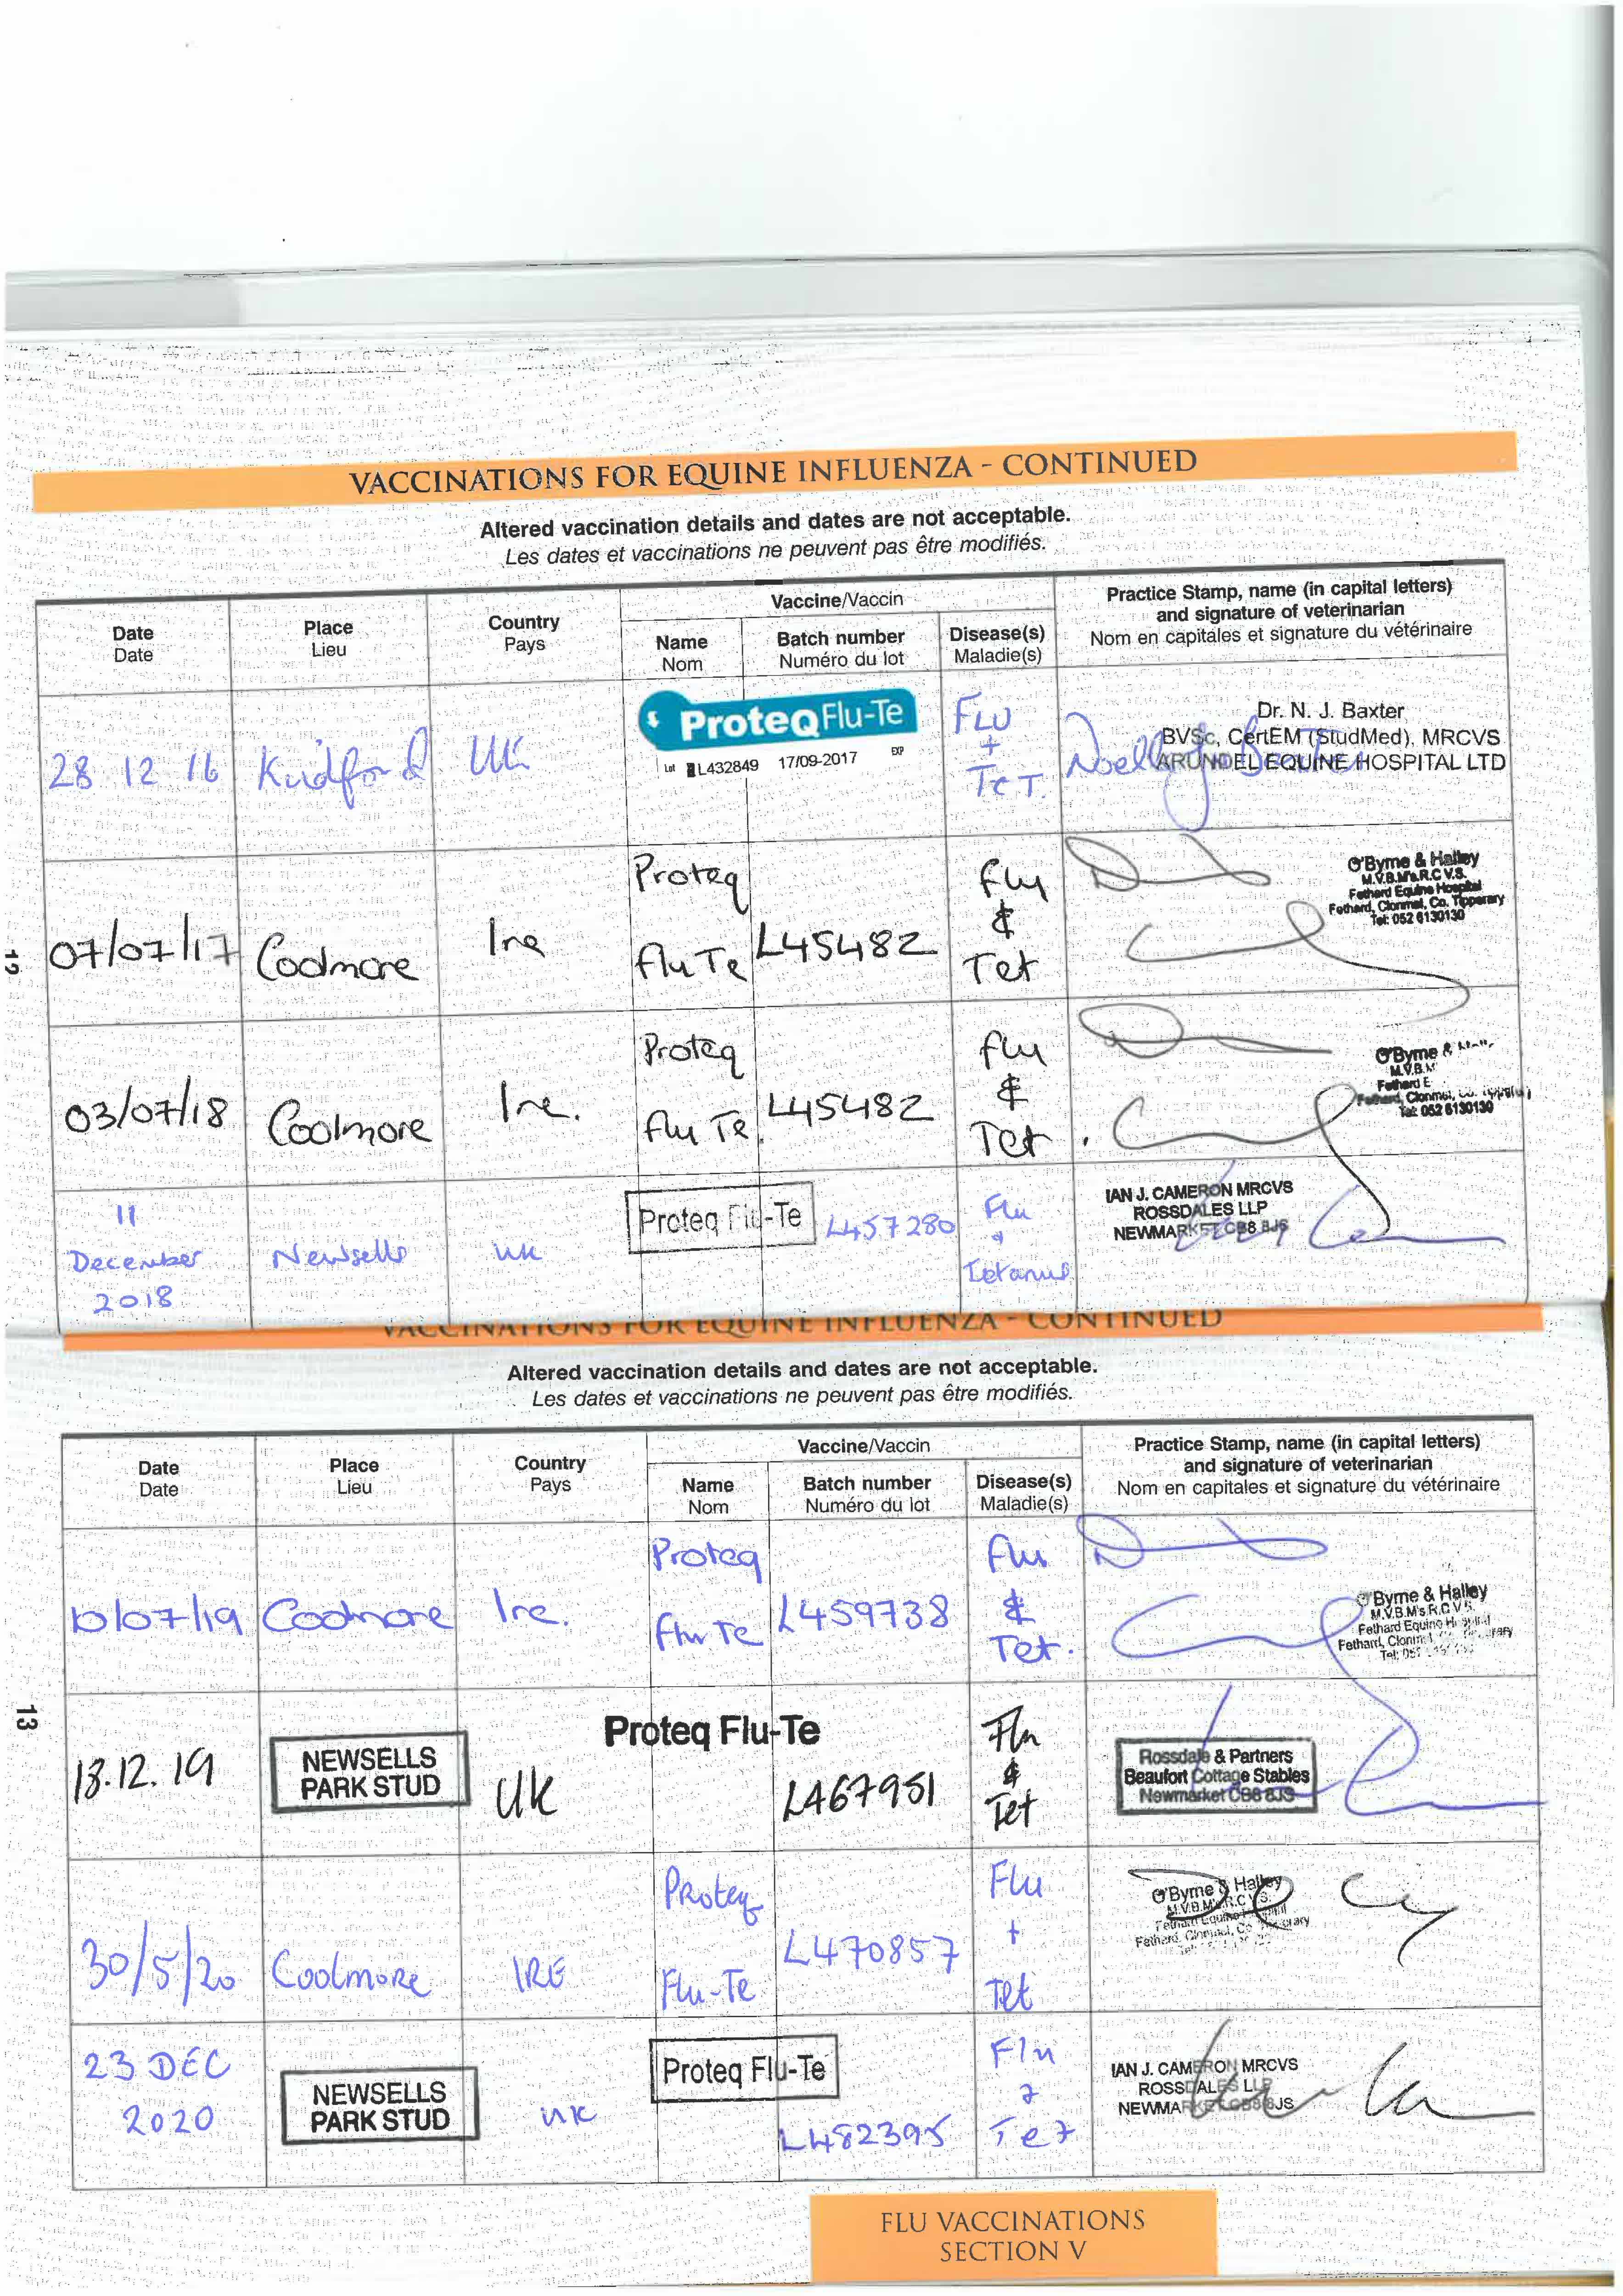 VACCINATIONS FOR EQUINE INFLUENZA - CONTINUED
Altered vaccination details and dates are not acceptable.
Les dates et vaccinations ne peuvent pas être modifiés.
Date
Date
Place
Lieu
Country
Pays
Vaccine/Vaccin
Name
Nom
Batch number
Numéro du lot
Disease(s)
Maladie(s)
Practice Stamp, name (in capital letters)
and signature of veterinarian
Nom en capitales et signature du vétérinaire
28 12 16
Kirdford
UK
ProteqFlu-Te
Lot L432849 17/09-2017 EXP
FLU
+
TeT.
Dr. N. J. Baxter
BVSc, CertEM (StudMed), MRCVS
ARUNDEL EQUINE HOSPITAL LTD
12
07/07/17
Coolmore
Ire
Proteq
flu Te
L45482
flu
&
Tet
O'Byrne & Halley
M.V.B.M's.R.C.V.S.
Fethard Equine Hospital
Fethard, Clonmel, Co. Tipperary
Tel: 052 6130130
03/07/18
Coolmore
Ire.
Proteq
flu Te.
L45482
flu
&
Tet
O'Byrne &
M.V.B.M
Fethard E
Fethard, Clonmel, Co.
Tel: 052 6130130
11
December
2018
Newsells
UK
Proteq Flu-Te
L457280
Flu
&
Tetanus
IAN J. CAMERON MRCVS
ROSSDALES LLP
NEWMARKET CB8 8JS
VACCINATIONS FOR EQUINE INFLUENZA - CONTINUED
Altered vaccination details and dates are not acceptable.
Les dates et vaccinations ne peuvent pas être modifiés.
Date
Date
Place
Lieu
Country
Pays
Vaccine/Vaccin
Name
Nom
Batch number
Numéro du lot
Disease(s)
Maladie(s)
Practice Stamp, name (in capital letters)
and signature of veterinarian
Nom en capitales et signature du vétérinaire
10/07/19
Coolmore
Ire.
Proteq
flu Te
L459738
flu
&
Tet.
O'Byrne & Halley
M.V.B.M's R.C.V.S.
Fethard Equine
Fethard,
13
13.12.19
NEWSELLS
PARK STUD
UK
Proteq Flu-Te
LA67951
Flu
&
Tet
Rossdale & Partners
Beaufort Cottage Stables
Newmarket CB8 8JS
30/5/20
Coolmore
IRE
Proteq
Flu-Te
L470857
Flu
+
Tet
O'Byrne & Halley
M.V.B.M's.R.C.V.S.
Fethard Equine
Fethard, Clonmel, Co
23 DEC
2020
NEWSELLS
PARK STUD
UK
Proteq Flu-Te
L482395
Flu
&
Tet
IAN J. CAMERON MRCVS
ROSSDALES LLP
NEWMARKET CB8 8JS
FLU VACCINATIONS
SECTION V